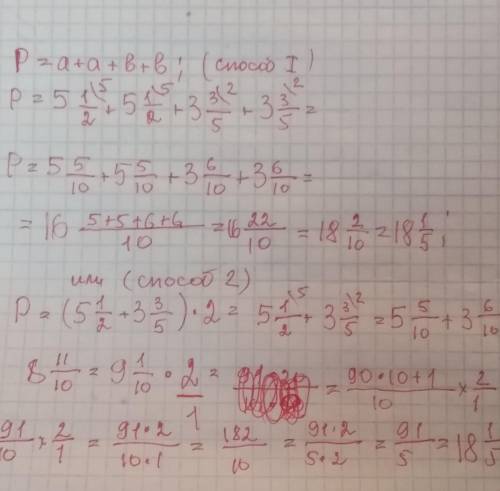 P = a + a + в + в; (способ I)
P = 5 1/2\5 + 5 1/2\5 + 3 3/5\2 + 3 3/5\2 =
P = 5 5/10 + 5 5/10 + 3 6/10 + 3 6/10 =
= 16 (5+5+6+6)/10 = 16 22/10 = 18 2/10 = 18 1/5;
или (способ 2)
P = (5 1/2 + 3 3/5) · 2 = 5 1/2\5 + 3 3/5\2 = 5 5/10 + 3 6/10
8 11/10 = 9 1/10 · 2/1 = = (90·10+1)/10 × 2/1
91/10 × 2/1 = (91·2)/(10·1) = 182/10 = (91·2)/(5·2) = 91/5 = 18 1/5